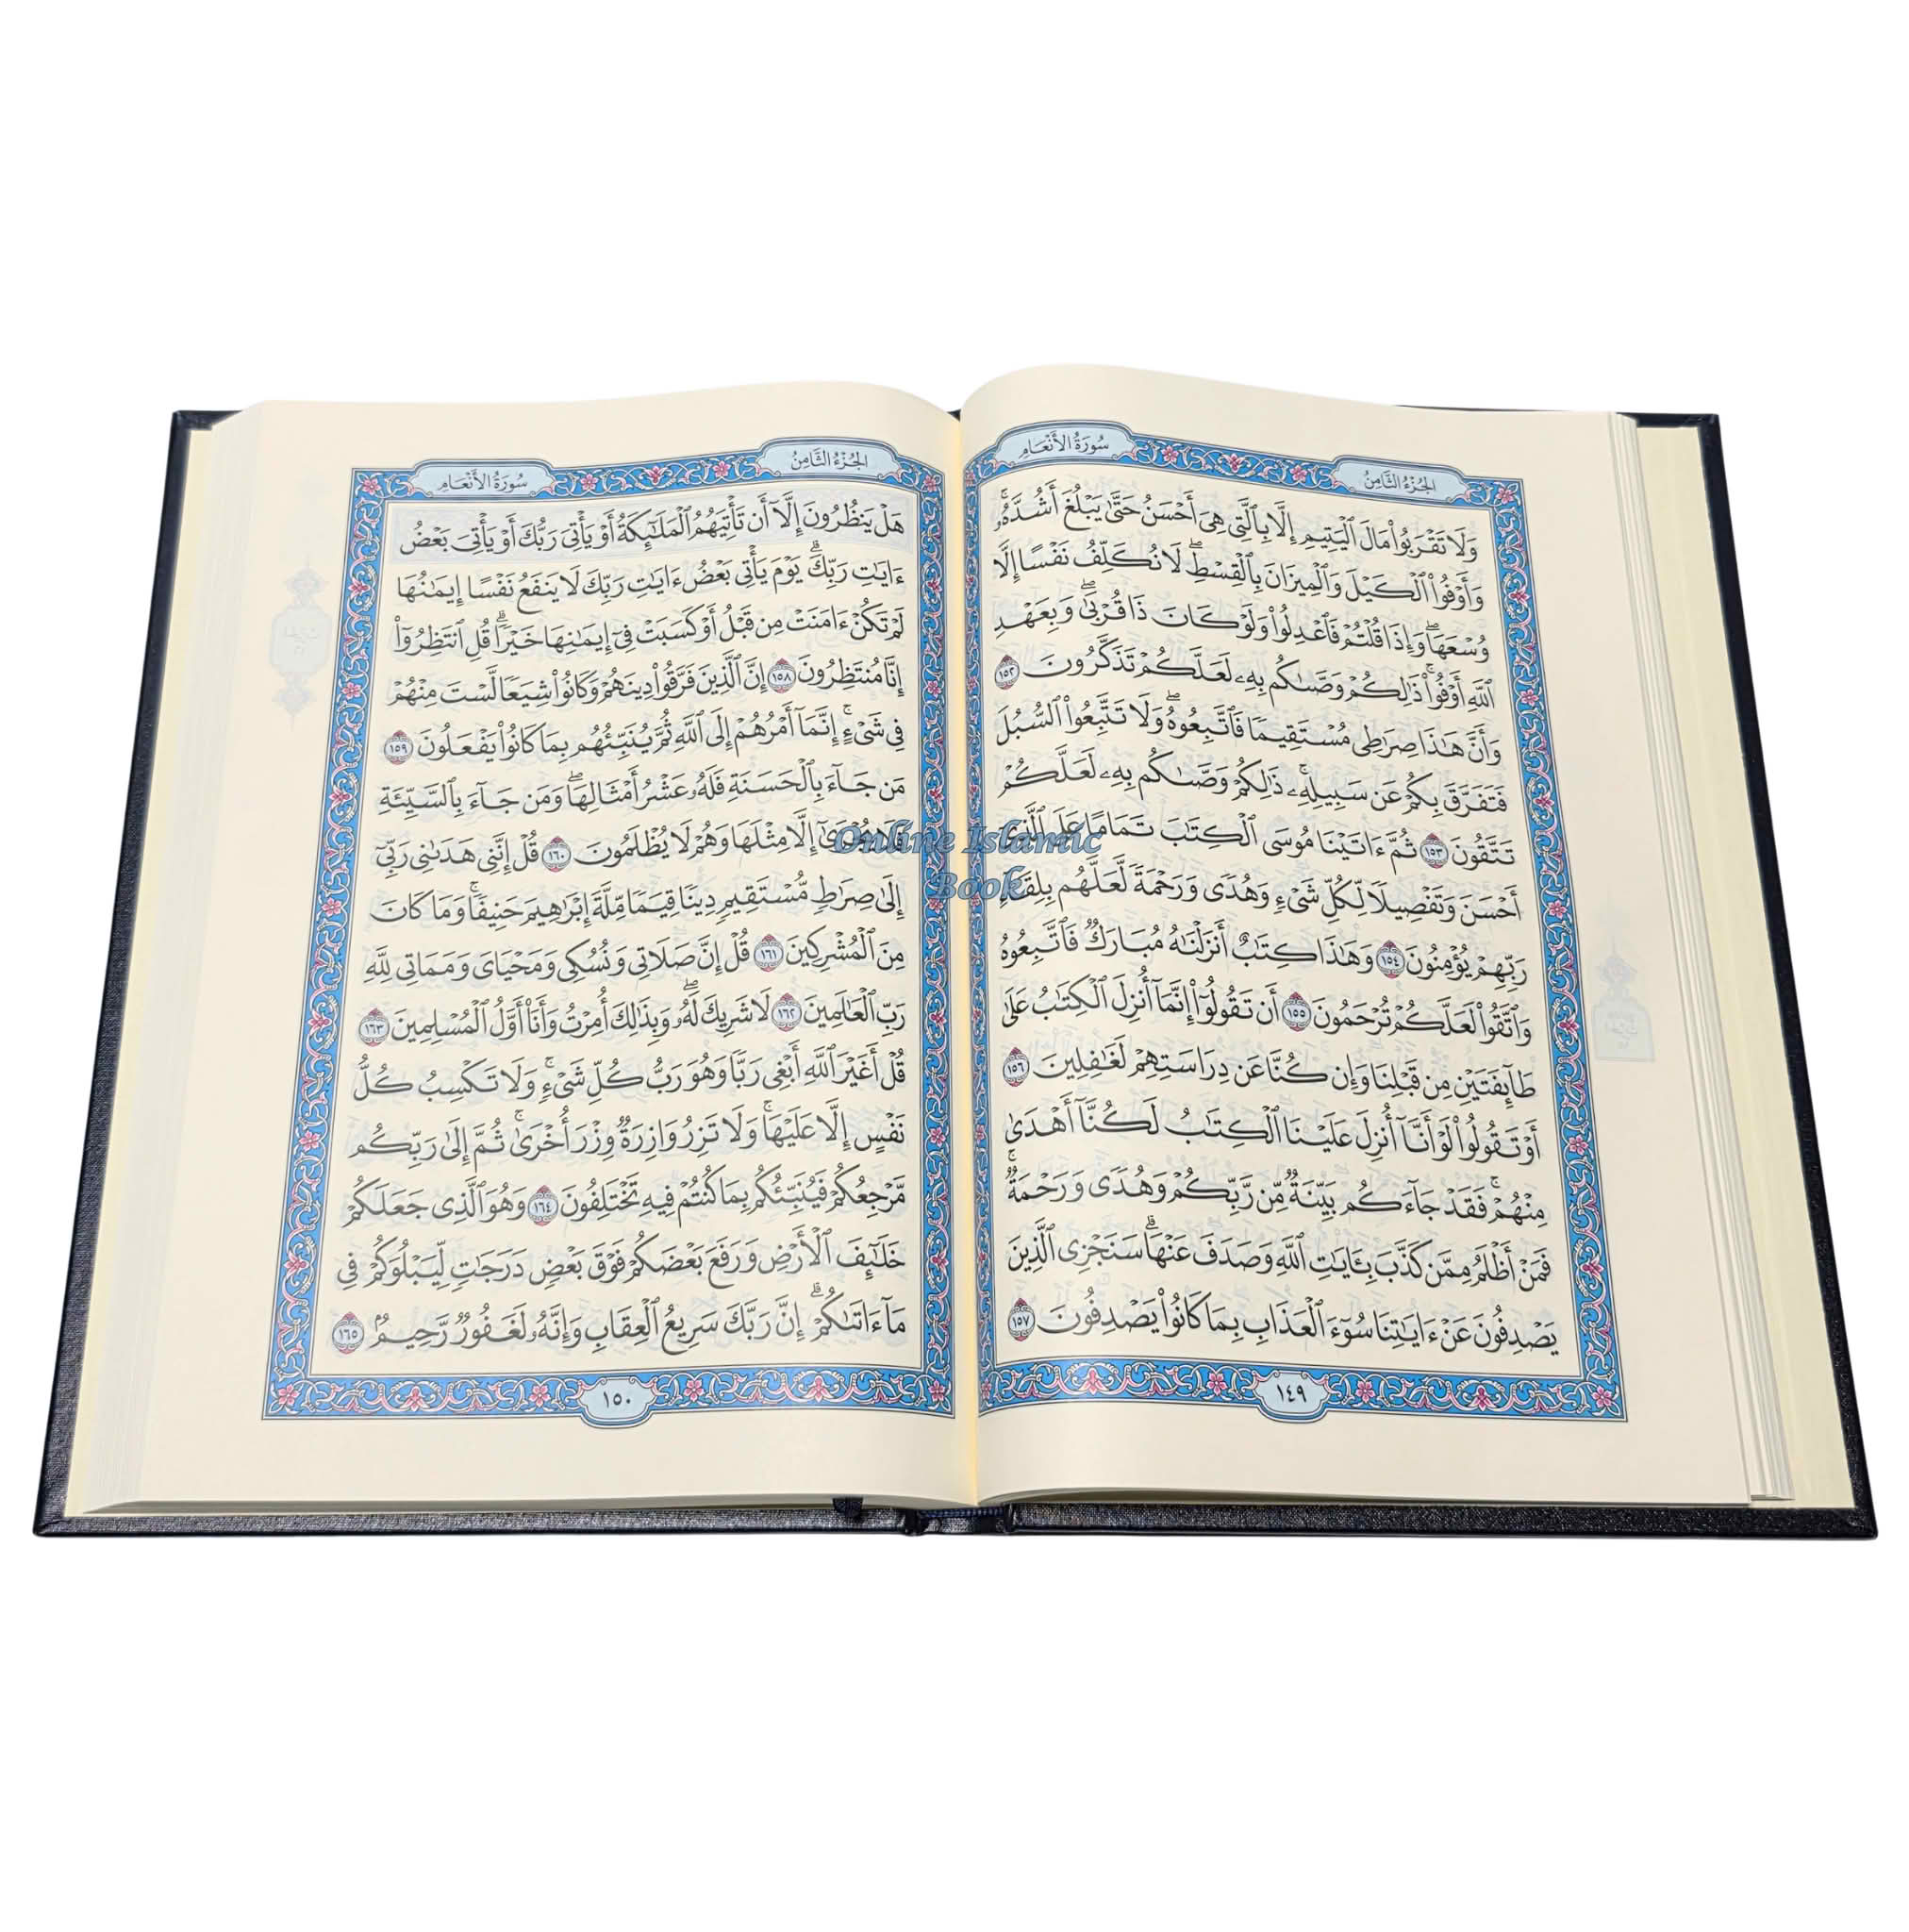 سُورَةُ الأَنْعَامِ
الجُزْءُ الثَّامِنُ
وَلَا تَقْرَبُوا۟ مَالَ ٱلْيَتِيمِ إِلَّا بِٱلَّتِى هِىَ أَحْسَنُ حَتَّىٰ يَبْلُغَ أَشُدَّهُۥۚ
وَأَوْفُوا۟ ٱلْكَيْلَ وَٱلْمِيزَانَ بِٱلْقِسْطِۖ لَا نُكَلِّفُ نَفْسًا إِلَّا
وُسْعَهَاۖ وَإِذَا قُلْتُمْ فَٱعْدِلُوا۟ وَلَوْ كَانَ ذَا قُرْبَىٰۖ وَبِعَهْدِ
ٱللَّهِ أَوْفُوا۟ۚ ذَٰلِكُمْ وَصَّىٰكُم بِهِۦ لَعَلَّكُمْ تَذَكَّرُونَ ١٥٢
وَأَنَّ هَٰذَا صِرَٰطِى مُسْتَقِيمًا فَٱتَّبِعُوهُۖ وَلَا تَتَّبِعُوا۟ ٱلسُّبُلَ
فَتَفَرَّقَ بِكُمْ عَن سَبِيلِهِۦۚ ذَٰلِكُمْ وَصَّىٰكُم بِهِۦ لَعَلَّكُمْ
تَتَّقُونَ ١٥٣ ثُمَّ ءَاتَيْنَا مُوسَى ٱلْكِتَٰبَ تَمَامًا عَلَى ٱلَّذِىٓ
أَحْسَنَ وَتَفْصِيلًا لِّكُلِّ شَىْءٍ وَهُدًى وَرَحْمَةً لَّعَلَّهُم بِلِقَآءِ
رَبِّهِمْ يُؤْمِنُونَ ١٥٤ وَهَٰذَا كِتَٰبٌ أَنزَلْنَٰهُ مُبَارَكٌ فَٱتَّبِعُوهُ
وَٱتَّقُوا۟ لَعَلَّكُمْ تُرْحَمُونَ ١٥٥ أَن تَقُولُوٓا۟ إِنَّمَآ أُنزِلَ ٱلْكِتَٰبُ عَلَىٰ
طَآئِفَتَيْنِ مِن قَبْلِنَا وَإِن كُنَّا عَن دِرَاسَتِهِمْ لَغَٰفِلِينَ ١٥٦
أَوْ تَقُولُوا۟ لَوْ أَنَّآ أُنزِلَ عَلَيْنَا ٱلْكِتَٰبُ لَكُنَّآ أَهْدَىٰ
مِنْهُمْۚ فَقَدْ جَآءَكُم بَيِّنَةٌ مِّن رَّبِّكُمْ وَهُدًى وَرَحْمَةٌۚ
فَمَنْ أَظْلَمُ مِمَّن كَذَّبَ بِـَٔايَٰتِ ٱللَّهِ وَصَدَفَ عَنْهَاۗ سَنَجْزِى ٱلَّذِينَ
يَصْدِفُونَ عَنْ ءَايَٰتِنَا سُوٓءَ ٱلْعَذَابِ بِمَا كَانُوا۟ يَصْدِفُونَ ١٥٧
١٤٩
سُورَةُ الأَنْعَامِ
الجُزْءُ الثَّامِنُ
هَلْ يَنظُرُونَ إِلَّآ أَن تَأْتِيَهُمُ ٱلْمَلَٰٓئِكَةُ أَوْ يَأْتِىَ رَبُّكَ أَوْ يَأْتِىَ بَعْضُ
ءَايَٰتِ رَبِّكَۗ يَوْمَ يَأْتِى بَعْضُ ءَايَٰتِ رَبِّكَ لَا يَنفَعُ نَفْسًا إِيمَٰنُهَا
لَمْ تَكُنْ ءَامَنَتْ مِن قَبْلُ أَوْ كَسَبَتْ فِىٓ إِيمَٰنِهَا خَيْرًاۗ قُلِ ٱنتَظِرُوٓا۟
إِنَّا مُنتَظِرُونَ ١٥٨ إِنَّ ٱلَّذِينَ فَرَّقُوا۟ دِينَهُمْ وَكَانُوا۟ شِيَعًا لَّسْتَ مِنْهُمْ
فِى شَىْءٍۚ إِنَّمَآ أَمْرُهُمْ إِلَى ٱللَّهِ ثُمَّ يُنَبِّئُهُم بِمَا كَانُوا۟ يَفْعَلُونَ ١٥٩
مَن جَآءَ بِٱلْحَسَنَةِ فَلَهُۥ عَشْرُ أَمْثَالِهَاۖ وَمَن جَآءَ بِٱلسَّيِّئَةِ
فَلَا يُجْزَىٰٓ إِلَّا مِثْلَهَا وَهُمْ لَا يُظْلَمُونَ ١٦٠ قُلْ إِنَّنِى هَدَىٰنِى رَبِّىٓ
إِلَىٰ صِرَٰطٍ مُّسْتَقِيمٍ دِينًا قِيَمًا مِّلَّةَ إِبْرَٰهِيمَ حَنِيفًاۚ وَمَا كَانَ
مِنَ ٱلْمُشْرِكِينَ ١٦١ قُلْ إِنَّ صَلَاتِى وَنُسُكِى وَمَحْيَاىَ وَمَمَاتِى لِلَّهِ
رَبِّ ٱلْعَٰلَمِينَ ١٦٢ لَا شَرِيكَ لَهُۥۖ وَبِذَٰلِكَ أُمِرْتُ وَأَنَا۠ أَوَّلُ ٱلْمُسْلِمِينَ ١٦٣
قُلْ أَغَيْرَ ٱللَّهِ أَبْغِى رَبًّا وَهُوَ رَبُّ كُلِّ شَىْءٍۚ وَلَا تَكْسِبُ كُلُّ
نَفْسٍ إِلَّا عَلَيْهَاۚ وَلَا تَزِرُ وَازِرَةٌ وِزْرَ أُخْرَىٰۚ ثُمَّ إِلَىٰ رَبِّكُم
مَّرْجِعُكُمْ فَيُنَبِّئُكُم بِمَا كُنتُمْ فِيهِ تَخْتَلِفُونَ ١٦٤ وَهُوَ ٱلَّذِى جَعَلَكُمْ
خَلَٰٓئِفَ ٱلْأَرْضِ وَرَفَعَ بَعْضَكُمْ فَوْقَ بَعْضٍ دَرَجَٰتٍ لِّيَبْلُوَكُمْ فِى
مَآ ءَاتَىٰكُمْۗ إِنَّ رَبَّكَ سَرِيعُ ٱلْعِقَابِ وَإِنَّهُۥ لَغَفُورٌ رَّحِيمٌۢ ١٦٥
١٥٠
Online Islamic
Book